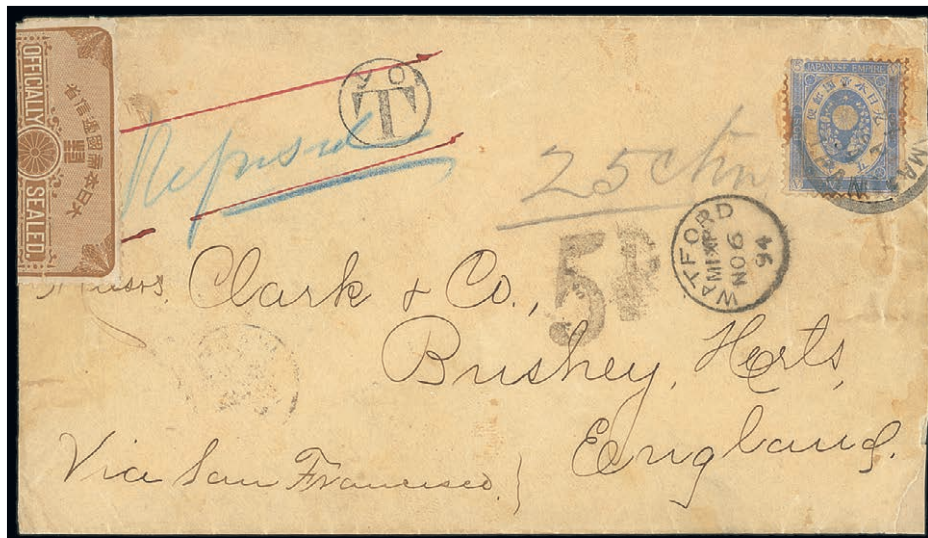 OFFICIALLY SEALED
大日本帝國逓信省
郵
Y O.
T
Refused
25 ctm
JAPANESE EMPIRE
大日本帝国郵便
WATFORD
NO 6
94
5D
Messrs. Clark & Co.,
Bushey, Herts,
England.
Via San Francisco.